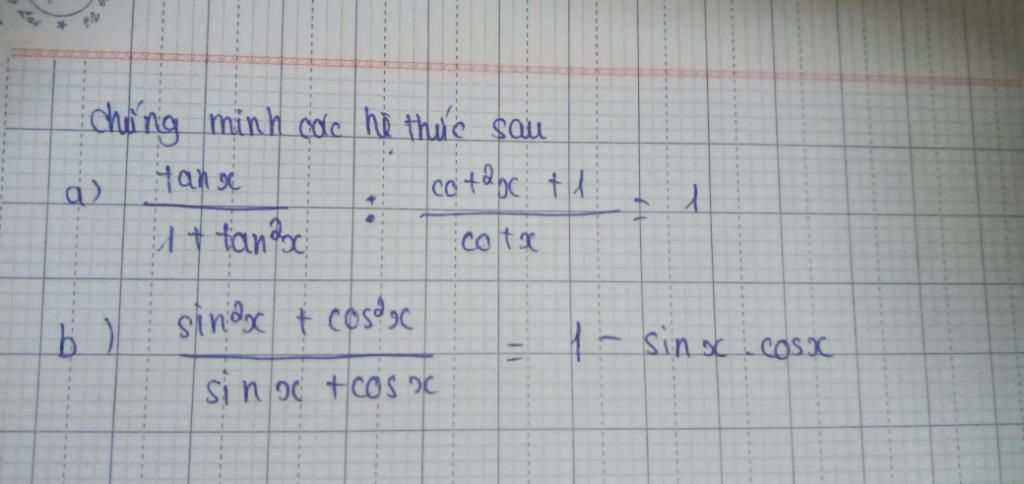 chứng minh các hệ thức sau
a) tanx / 1 + tan²x : cot²x + 1 / cotx = 1
b) sin²x + cos²x / sinx + cosx = 1 - sinx . cosx